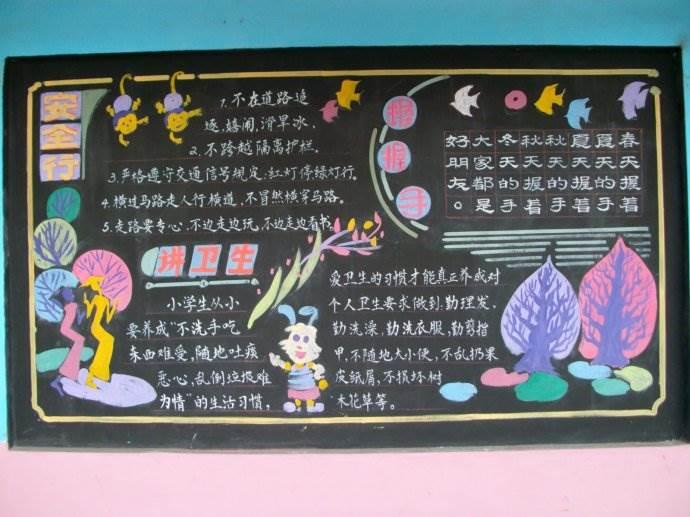 安全行
1.不在道路追
逐,嬉闹,滑旱冰。
2.不跨越隔离护栏。
3.严格遵守交通信号规定,红灯停绿灯行。
4.横过马路走人行横道,不冒然横穿马路。
5.走路要专心,不边走边玩,不边走边看书。
握握手
春天握着
夏天的手
夏天握着
秋天的手
秋天握着
冬天的手
大家都是
好朋友。
讲卫生
小学生从小
要养成“不洗手吃
东西难受,随地吐痰
恶心,乱倒垃圾难
为情”的生活习惯,
爱卫生的习惯才能真正养成对
个人卫生要求做到,勤理发,
勤洗澡,勤洗衣服,勤剪指
甲,不随地大小便,不乱扔果
皮纸屑,不损坏树
木花草等。